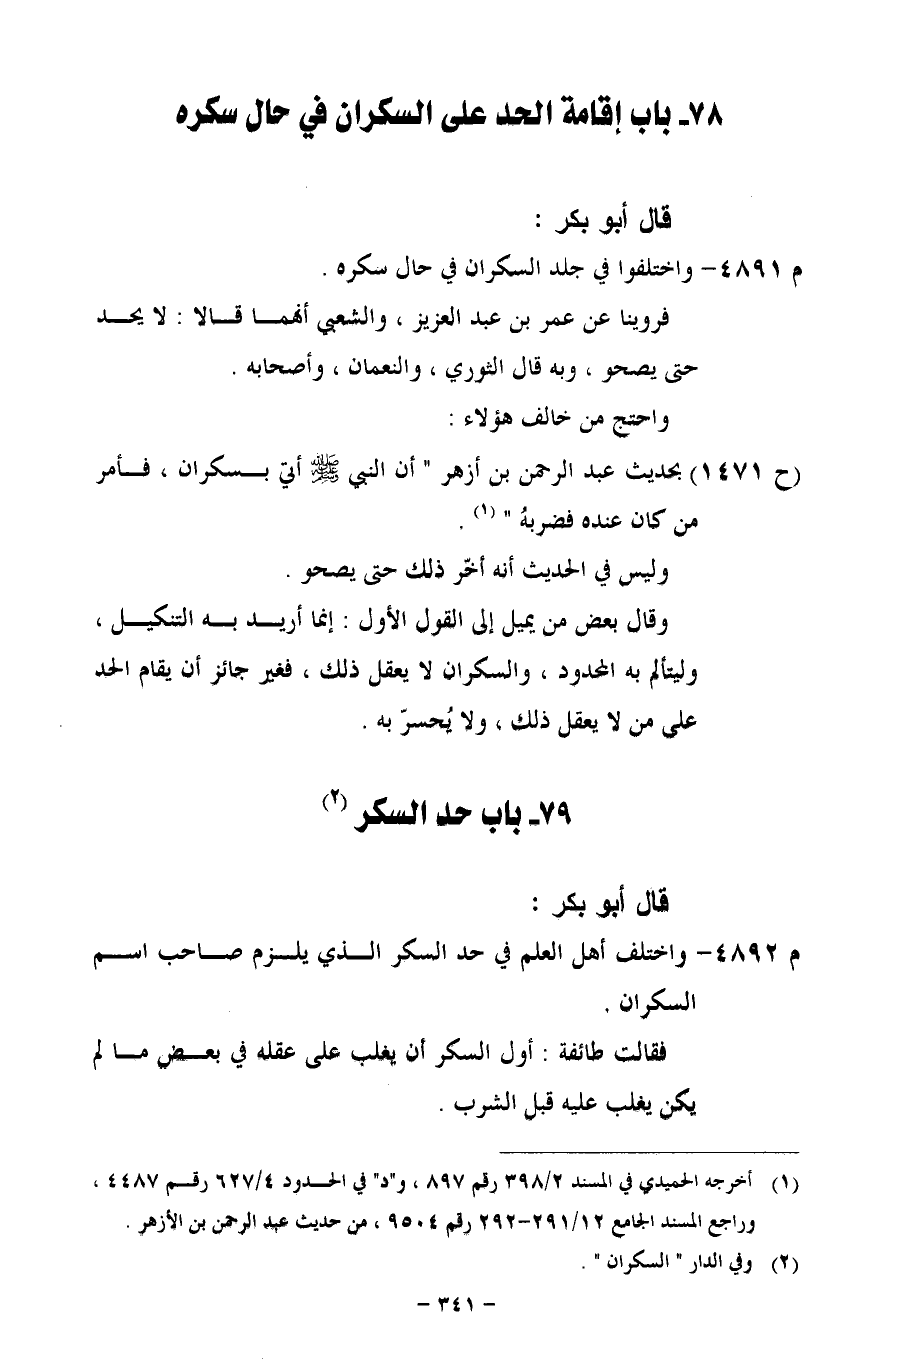 ٧٨ـ باب إقامة الحد على السكران في حال سكره
قال أبو بكر :
م ٤٨٩١– واختلفوا في جلد السكران في حال سكره .
فروينا عن عمر بن عبد العزيز ، والشعبي أنهمـــا قـــالا : لا يحـــد
حتى يصحو ، وبه قال الثوري ، والنعمان ، وأصحابه .
واحتج من خالف هؤلاء :
(ح ١٤٧١) بحديث عبد الرحمن بن أزهر " أن النبي ﷺ أتيَ بـــسكران ، فـــأمر
من كان عنده فضربهُ " (١) .
وليس في الحديث أنه أخّر ذلك حتى يصحو .
وقال بعض من يميل إلى القول الأول : إنما أريـــد بـــه التنكيـــل ،
وليتألم به المحدود ، والسكران لا يعقل ذلك ، فغير جائز أن يقام الحد
على من لا يعقل ذلك ، ولا يُحسرّ به .
٧٩ـ باب حد السكر (٢)
قال أبو بكر :
م ٤٨٩٢– واختلف أهل العلم في حد السكر الـــذي يلـــزم صـــاحب اســـم
السكران .
فقالت طائفة : أول السكر أن يغلب على عقله في بعـــض مـــا لم
يكن يغلب عليه قبل الشرب .
(١) أخرجه الحميدي في المسند ٣٩٨/٢ رقم ٨٩٧ ، و"د" في الحـــدود ٦٢٧/٤ رقـــم ٤٤٨٧ ،
وراجع المسند الجامع ٢٩١/١٢–٢٩٢ رقم ٩٥٠٤ ، من حديث عبد الرحمن بن الأزهر .
(٢) وفي الدار " السكران " .
– ٣٤١ –